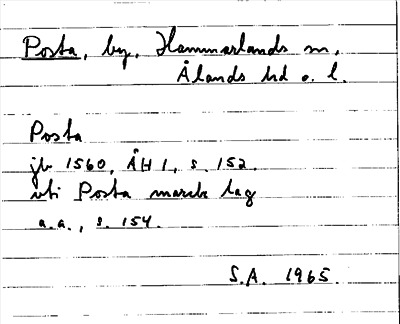 Posta, by, Hammarlands sn,
Ålands hd o. l.
Posta
jb 1560, ÅH 1, s. 152.
uti Posta marcke lag
a.a., s. 154.
S.A. 1965.